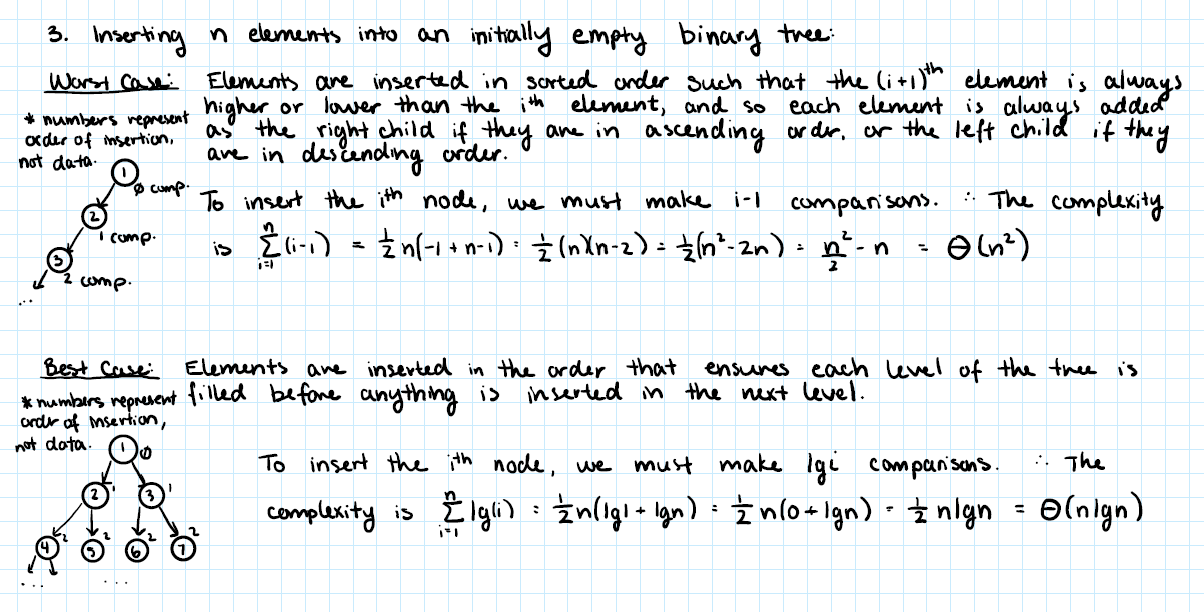 3. Inserting n elements into an initially empty binary tree:
Worst Case: Elements are inserted in sorted order such that the (i+1)^th element is always
higher or lower than the i^th element, and so each element is always added
as the right child if they are in ascending order, or the left child if they
are in descending order.
* numbers represent
order of insertion,
not data.
1
0 comp.
2
1 comp.
3
2 comp.
...
To insert the i^th node, we must make i-1 comparisons. ∴ The complexity
is n∑i=1 (i-1) = 1/2 n(-1 + n-1) = 1/2 (n)(n-2) = 1/2 (n²-2n) = n²/2 - n = Θ(n²)
Best Case: Elements are inserted in the order that ensures each level of the tree is
filled before anything is inserted in the next level.
* numbers represent
order of insertion,
not data.
1 0
2 1 3 1
4 2 5 2 6 2 7 2
... ...
To insert the i^th node, we must make lgi comparisons. ∴ The
complexity is n∑i=1 lg(i) = 1/2 n(lg1 + lgn) = 1/2 n(0 + lgn) = 1/2 nlgn = Θ(nlgn)